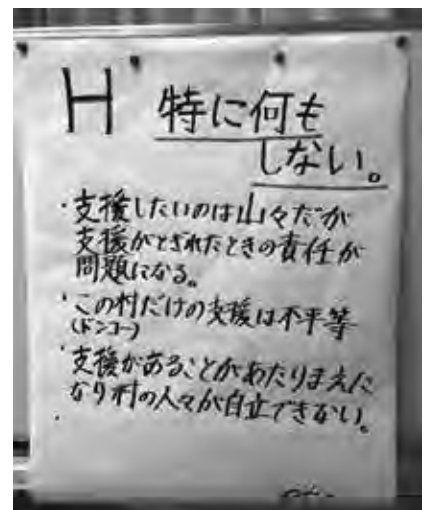 H 特に何も
しない。
・支援したいのは山々だが
支援がとぎれたときの責任が
問題になる。
・この村だけの支援は不平等
(ドンコー)
・支援があることがあたりまえに
なり村の人々が自立できない。
・